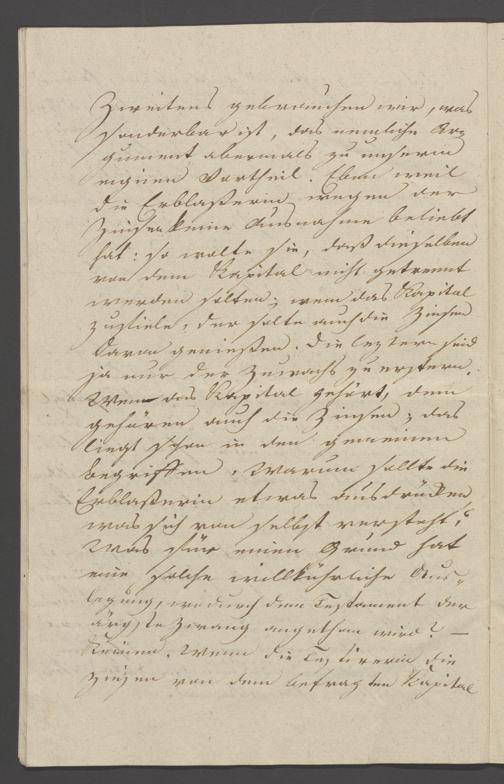 Zweitens gebrauchen wir, was
sonderbar ist, das nemliche Ar=
gument abermals zu unserm
eignen Vortheil. Eben weil
die Erblaßerin wegen der
Zinsen keine Ausnahme beliebt
hat: so wolte sie, daß dieselben
von dem Kapital nicht getrennt
werden solten; wem das Kapital
zufiele, der solte auch die Zinsen
davon genießen. Die leztern sind
ja nur der Zuwachs zu erstern.
Wem das Kapital gehört, dem
gehören auch die Zinsen; das
liegt schon in den gemeinen
Begriffen. Warum sollte die
Erblaßerin etwas ausdrücken
was sich von selbst versteht?
Was für einen Grund hat
eine solche willkührliche Aus=
legung, wodurch dem Testament der
ärgste Zwang angethan wird? —
Keinen. Wenn die Testirerin die
Zinsen von dem befragten Kapital